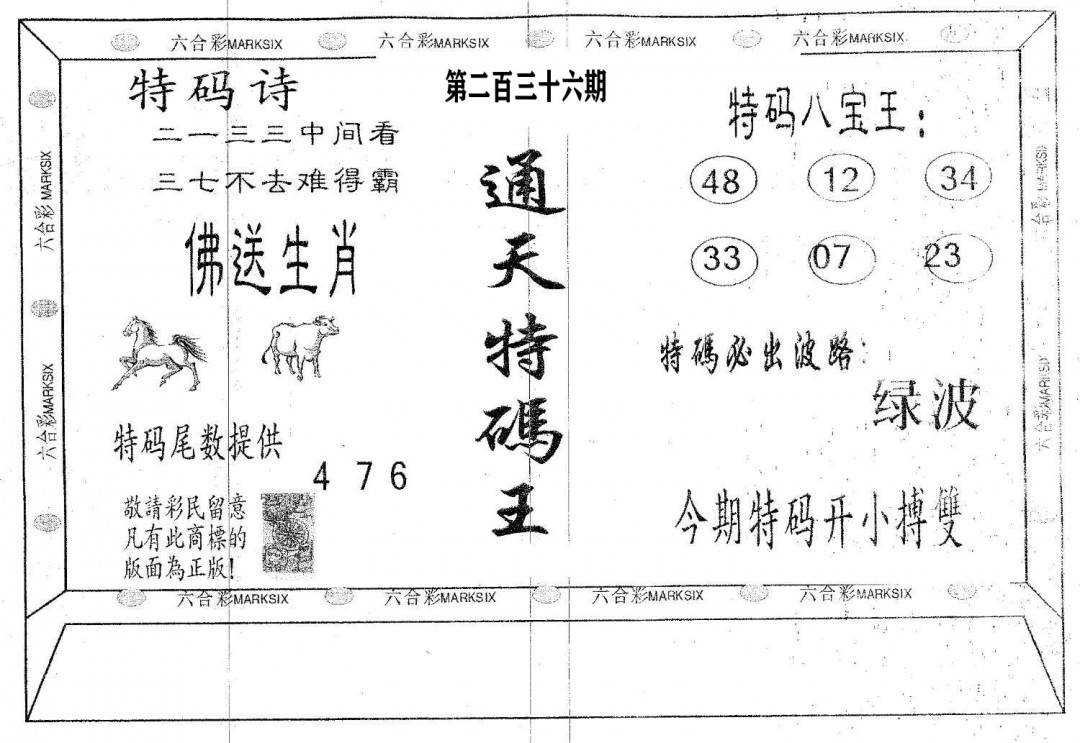 六合彩MARKSIX 六合彩MARKSIX 六合彩MARKSIX 六合彩MARKSIX
第二百三十六期
特码诗
二一三三中间看
三七不去难得霸
佛送生肖
特码尾数提供
4 7 6
敬請彩民留意
凡有此商標的
版面為正版!
通天特碼王
特码八宝王:
48 12 34
33 07 23
特碼必出波路:
绿波
今期特码开小搏雙
六合彩MARKSIX
六合彩MARKSIX
六合彩MARKSIX
六合彩MARKSIX
六合彩MARKSIX 六合彩MARKSIX 六合彩MARKSIX 六合彩MARKSIX